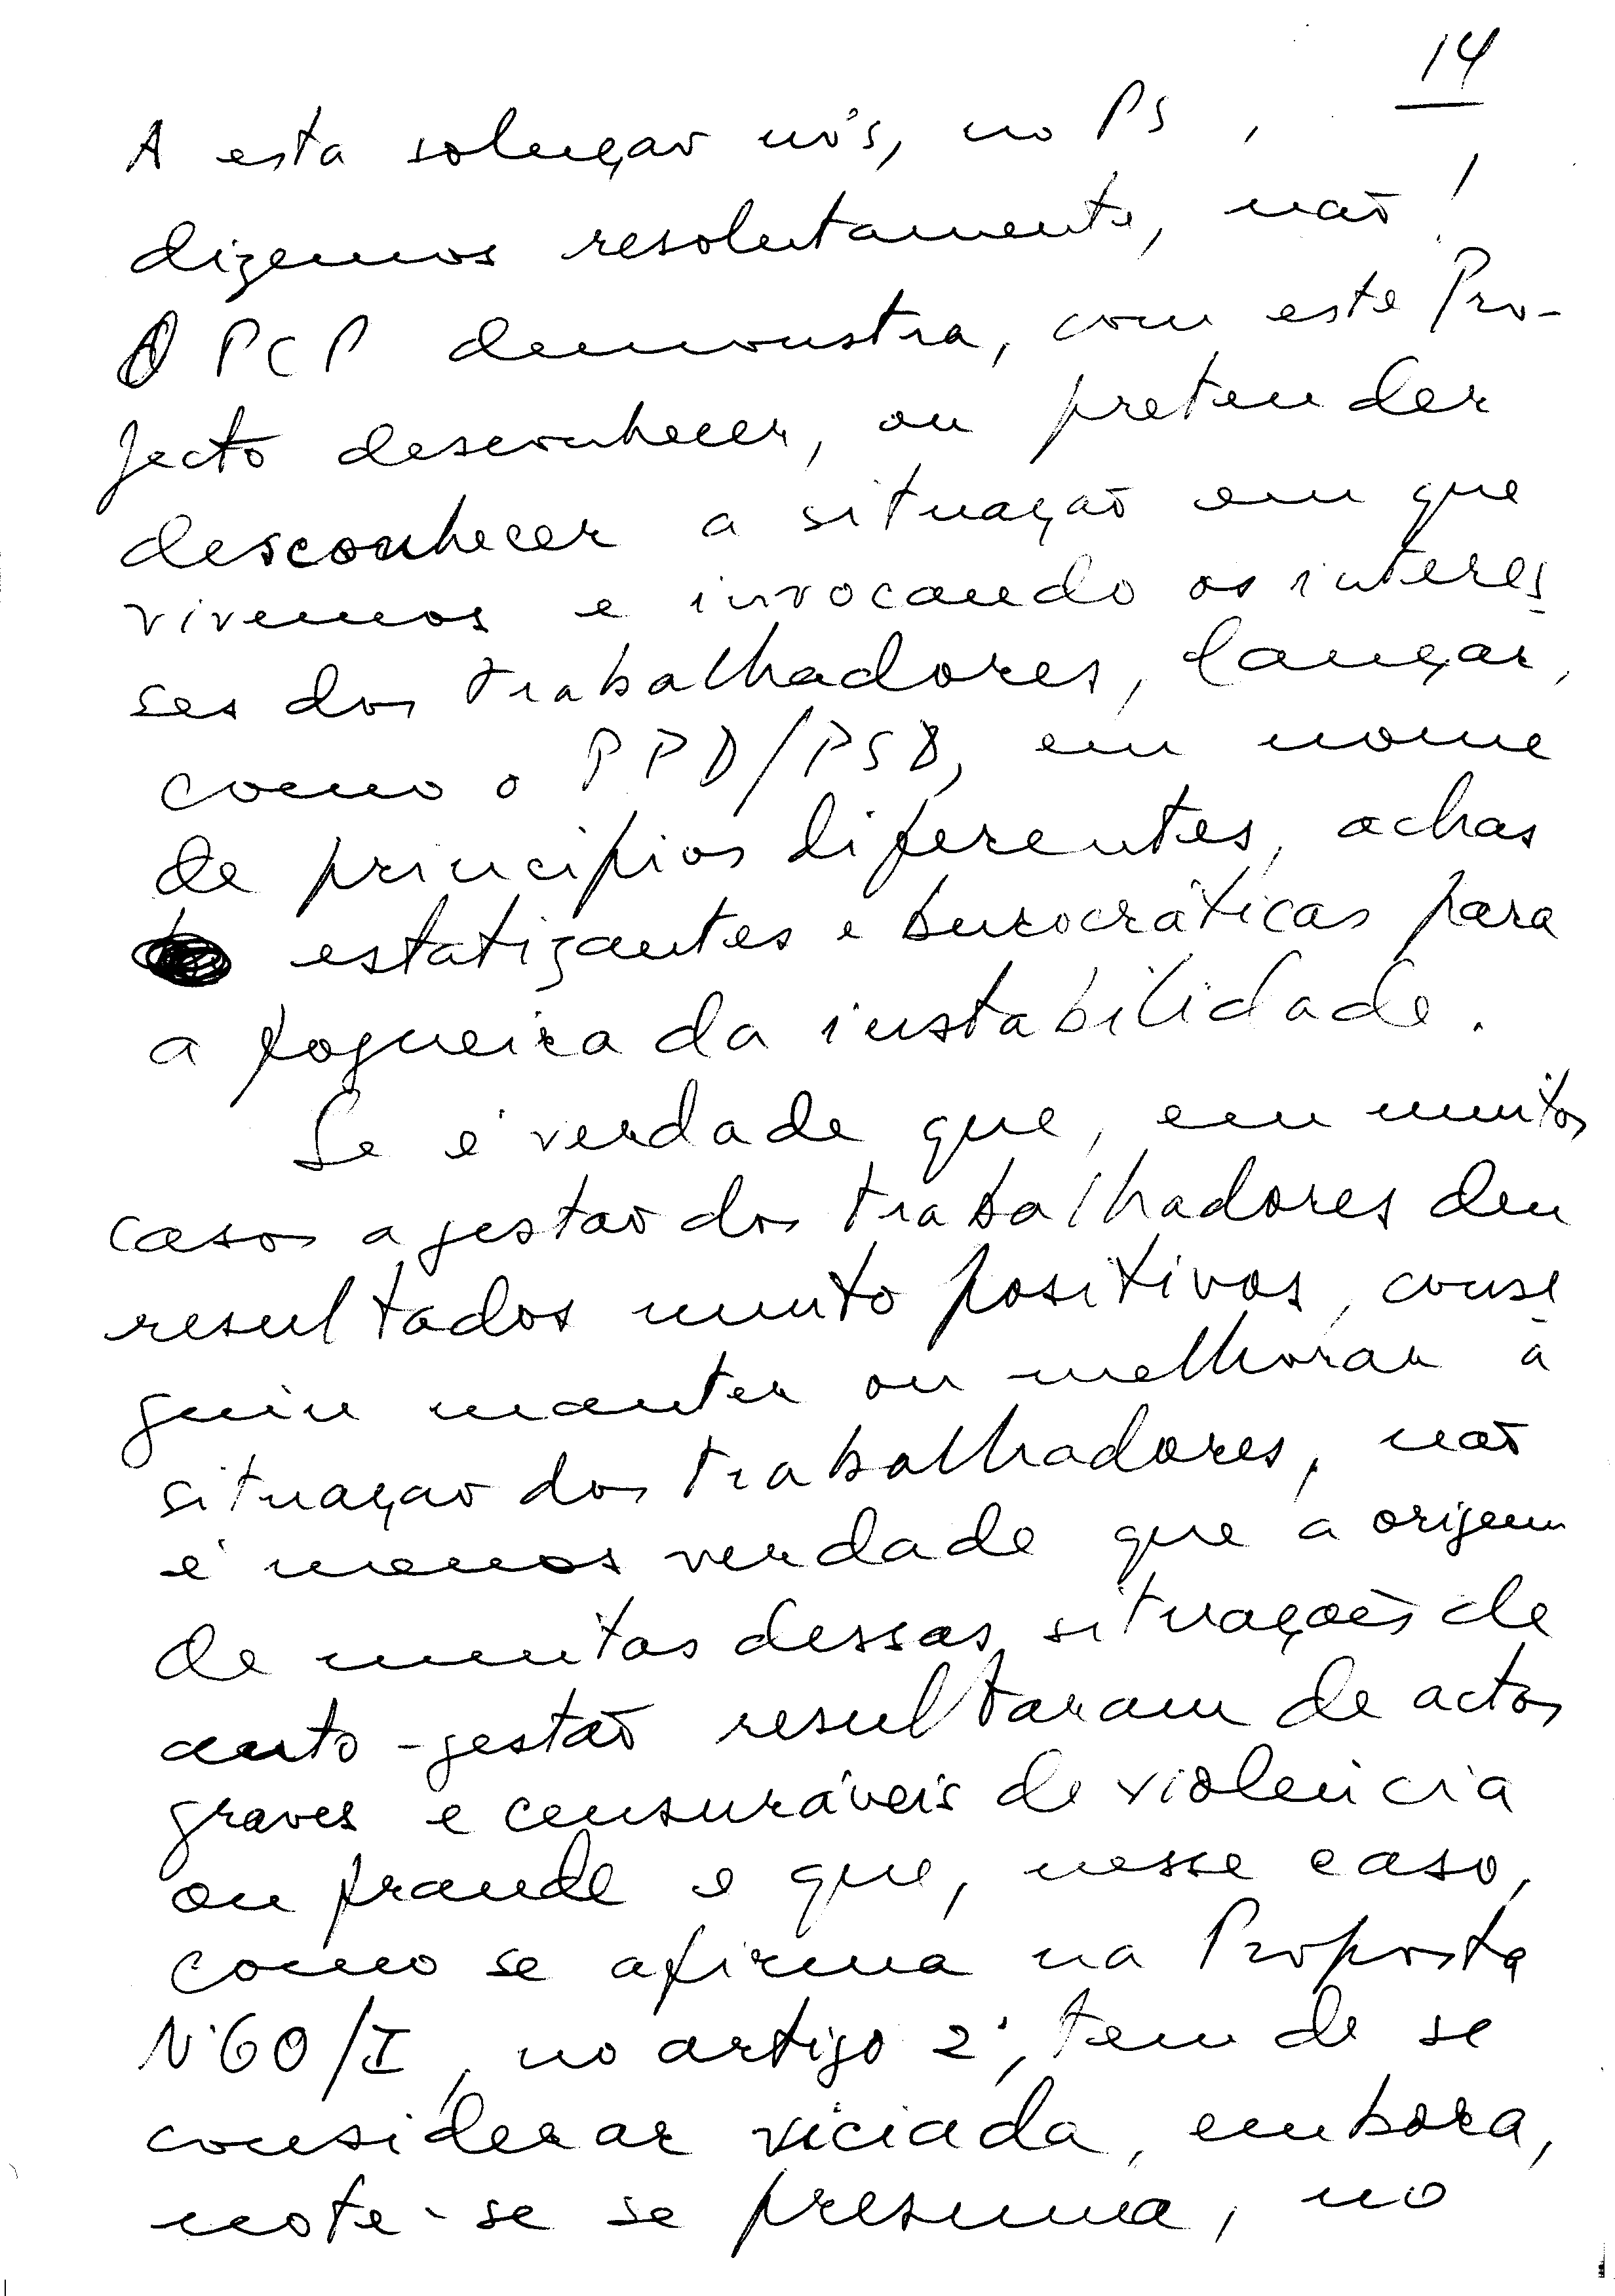 14
A esta solução nós, no PS,
dizemos resolutamente, não!
O PCP demonstra, com este Pro-
jecto desconhecer, ou pretender
desconhecer a situação em que
vivemos e invocando os interes
ses dos trabalhadores, lançar,
como o PPD/PSD, em nome
de princípios diferentes, achas
estatizantes e burocráticas para
a fogueira da instabilidade.
Se é verdade que, em muitos
casos a gestão dos trabalhadores deu
resultados muito positivos, conse
guiu manter ou melhorar a
situação dos trabalhadores, não
é menos verdade que a origem
de muitas dessas situações de
auto-gestão resultaram de actos
graves e censuráveis de violência
ou fraude e que, nesse caso,
como se afirma na Proposta
Nº 60/I, no artigo 2º, tem de se
considerar viciada, embora,
note-se se presuma, no